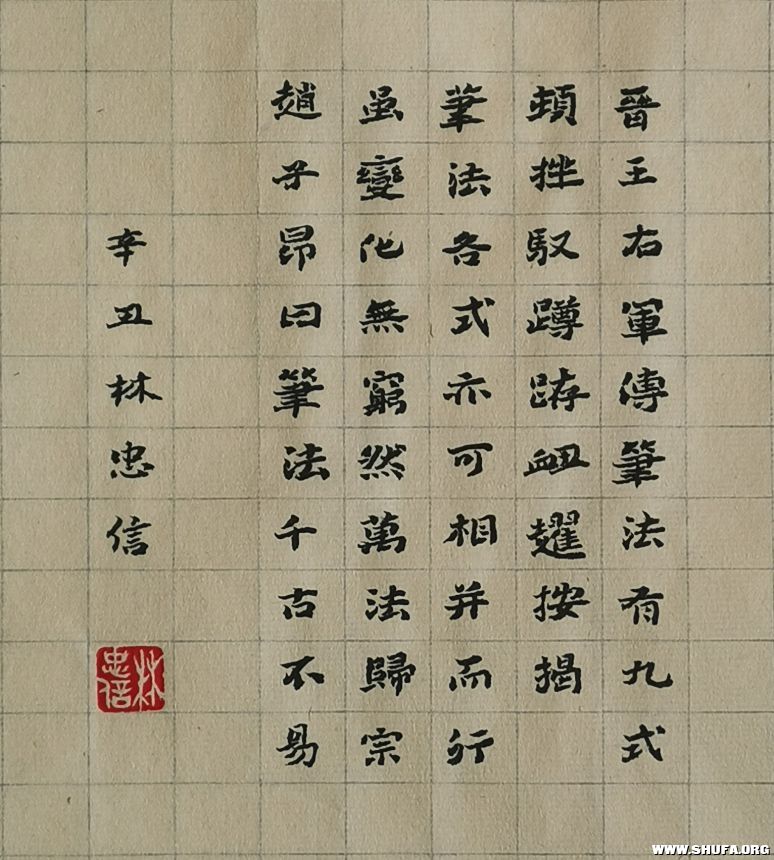 晉王右軍傳筆法有九式
頓挫馭蹲踤衄趯按揭
筆法各式亦可相并而行
虽變化無窮然萬法歸宗
趙子昂曰筆法千古不易
辛丑林忠信
林忠信
WWW.SHUFA.ORG